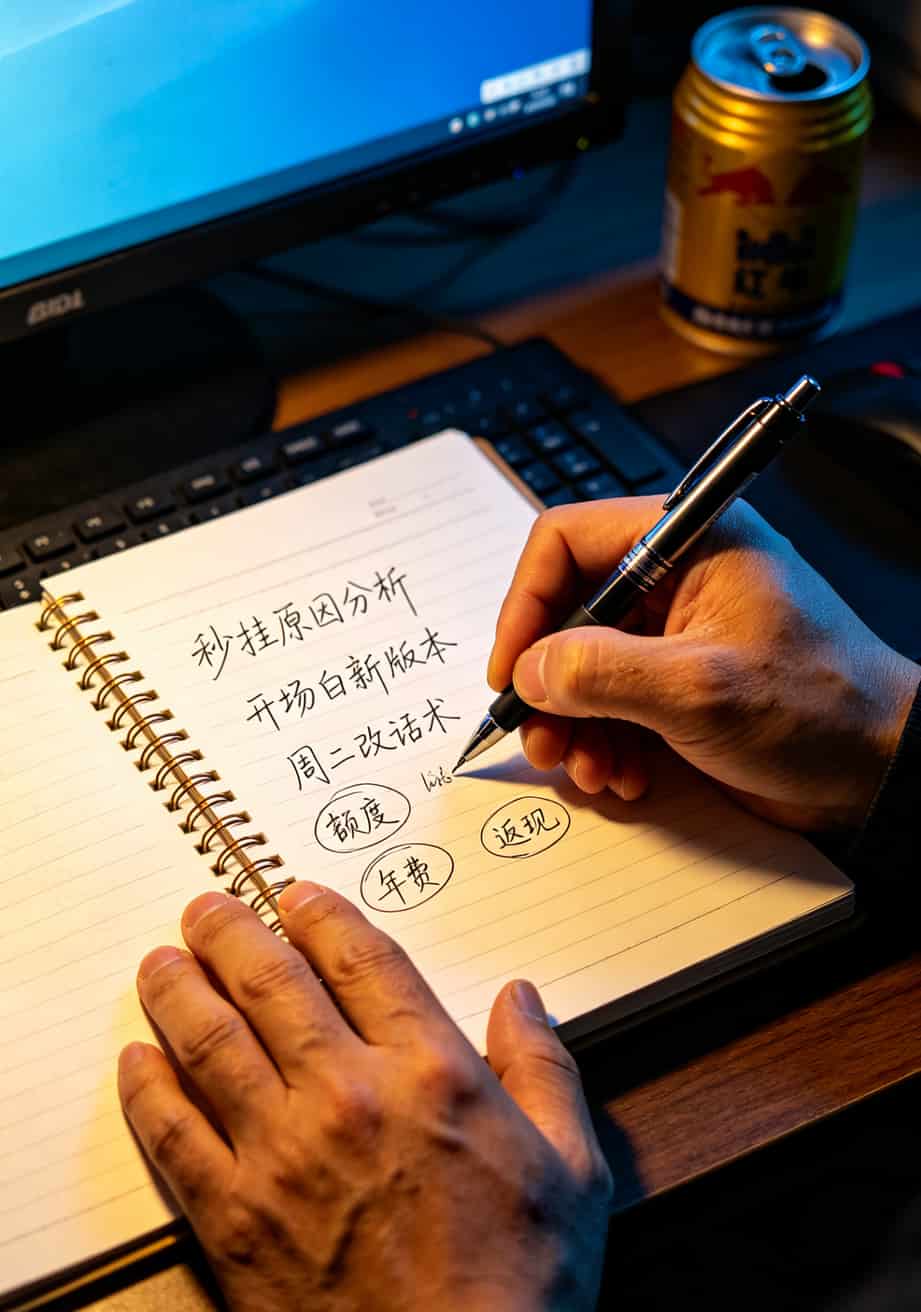 秒挂原因分析
开场白新版本
周二改话术
额度
返现
年费